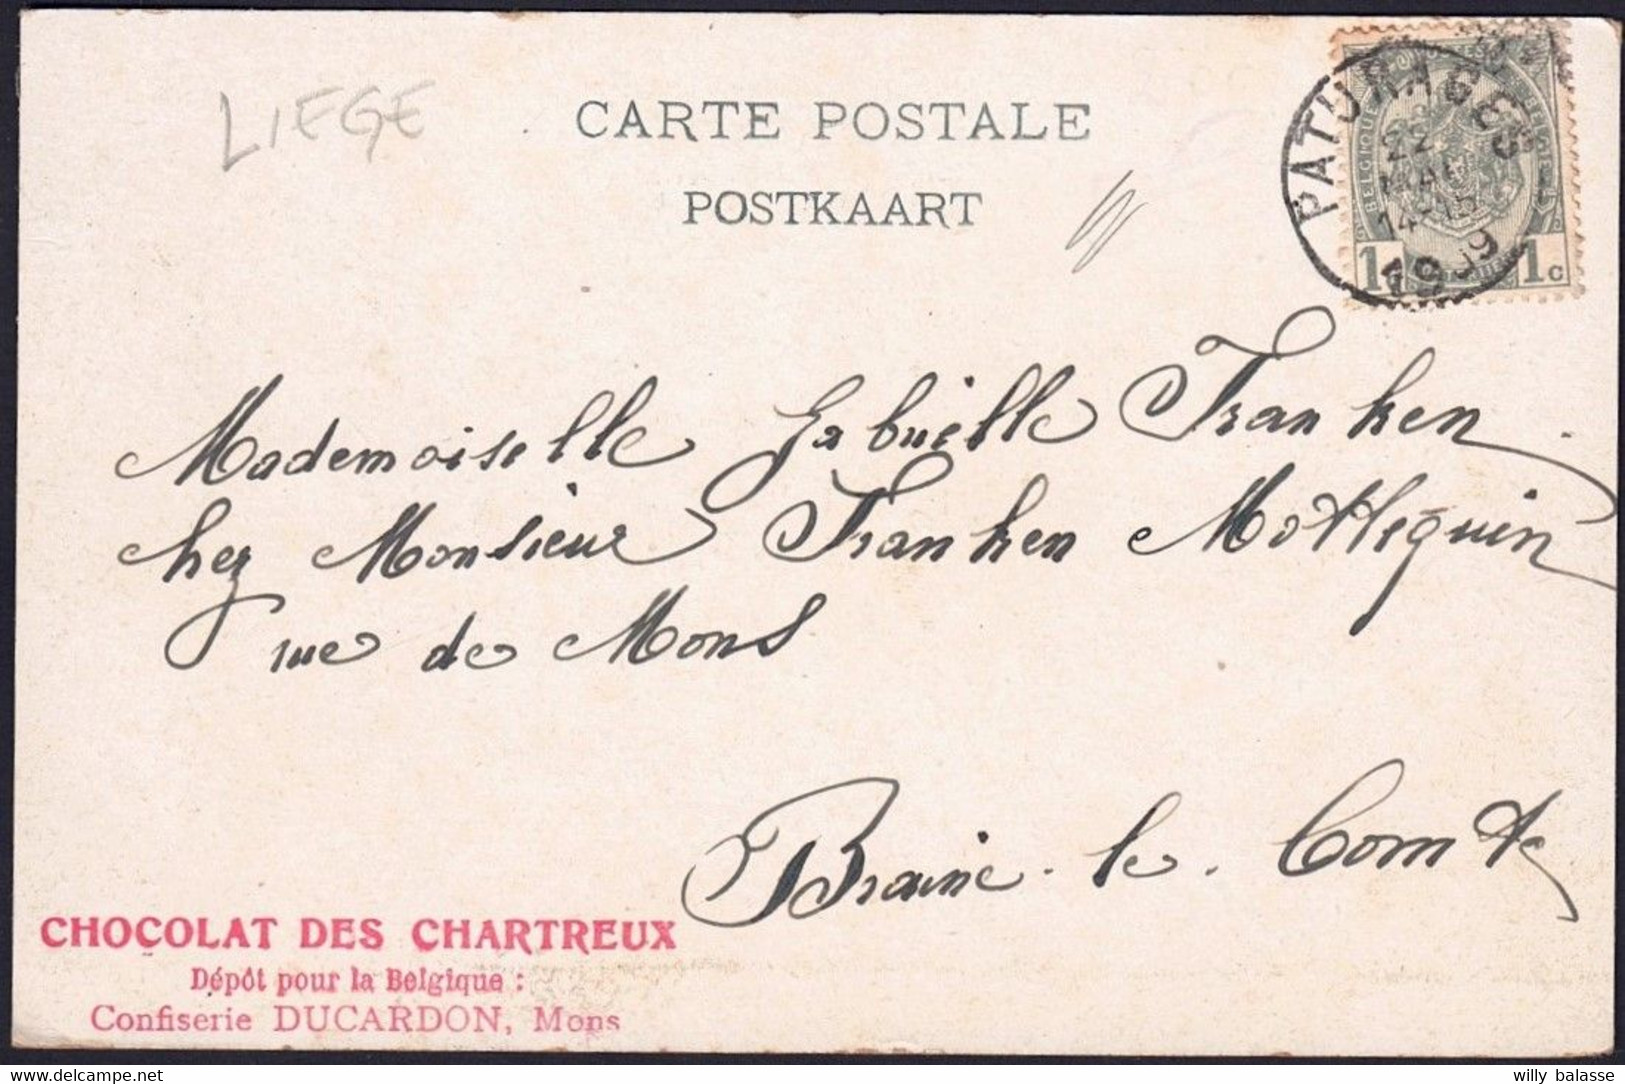 LIEGE
CARTE POSTALE
POSTKAART
PATURAGES
22
14-15
1909
BELGIQUE
1 1c
Mademoiselle Gabrielle Franken
chez Monsieur Franken Motlequin
rue de Mons
Braine-le-Comte
CHOCOLAT DES CHARTREUX
Dépôt pour la Belgique :
Confiserie DUCARDON, Mons
willy balasse